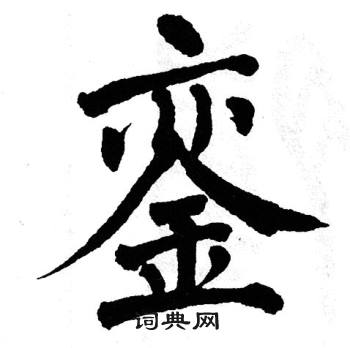 銮
词典网